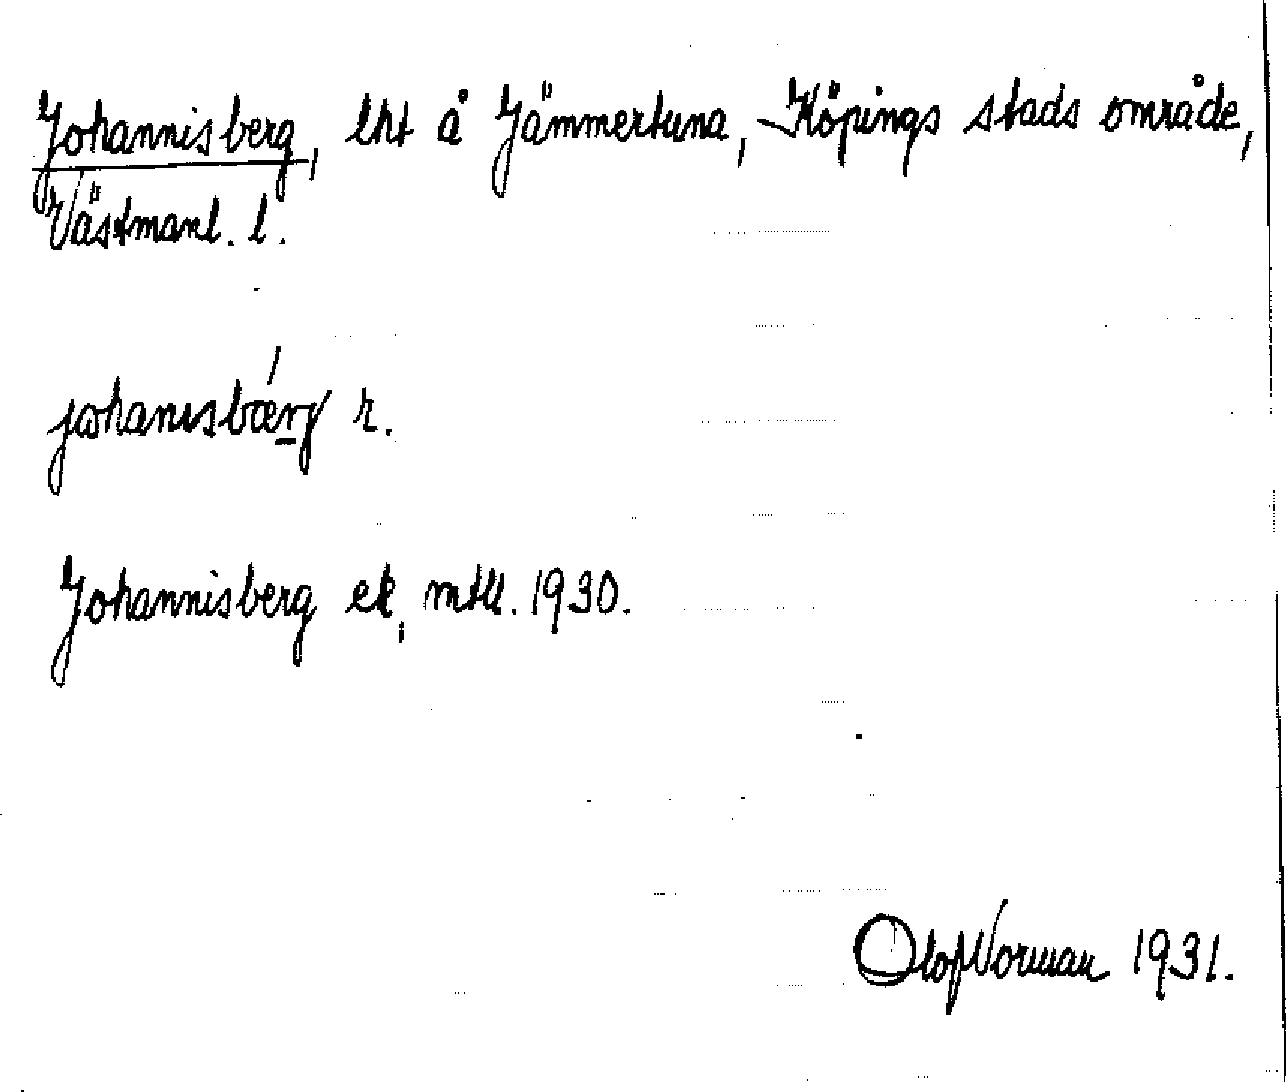 Johannisberg, lht å Jämmertuna, Köpings stads område,
Västmanl. l.
johanisbærj r.
Johannisberg ek, mtll. 1930.
Olof Norman 1931.